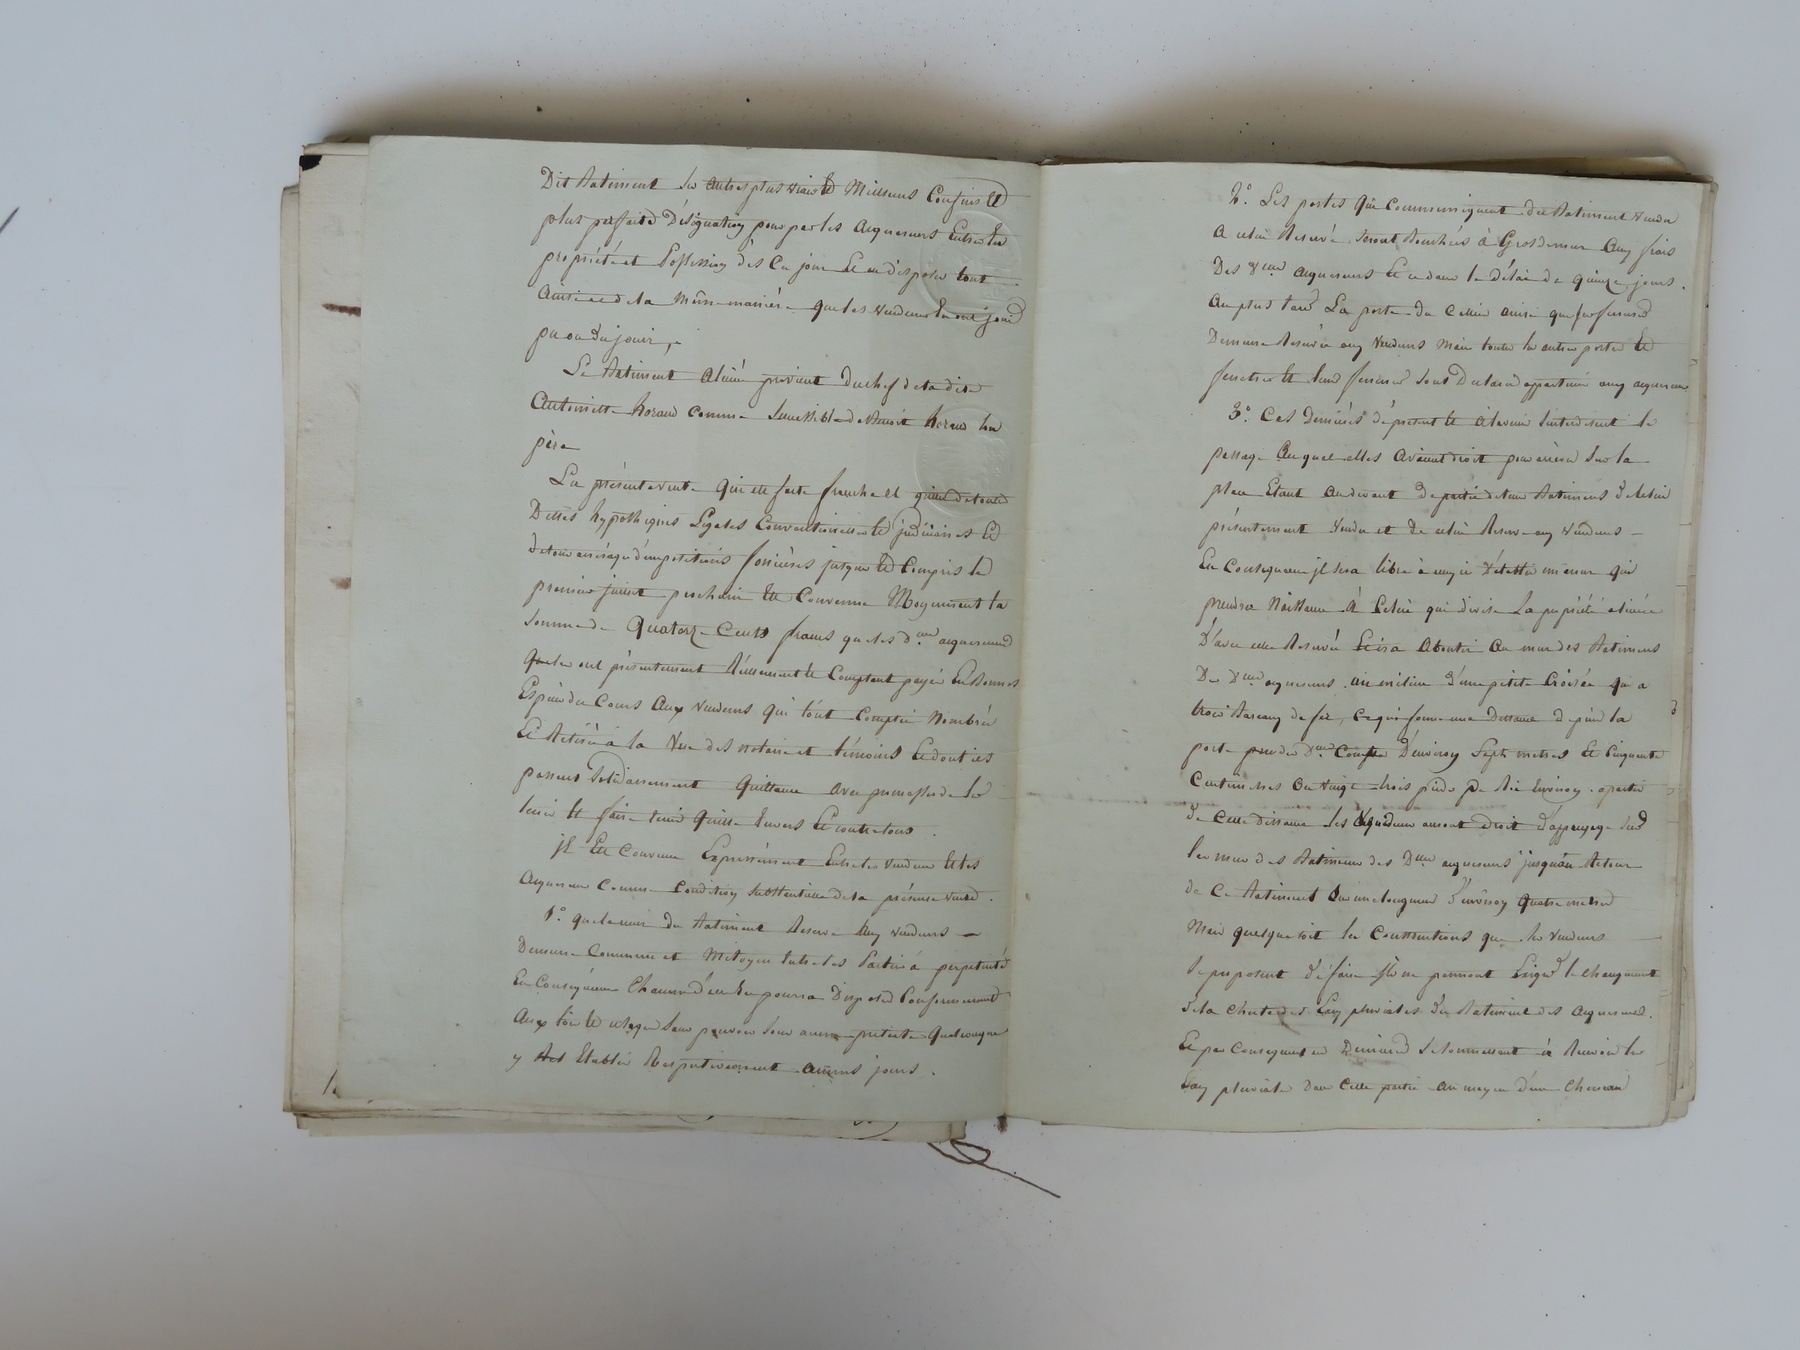 Dit Batiment Ses autres plus vrais Et Meilleurs Confins Et
plus parfaite Désignation pour par les acquereurs Entrer En
propriété et Possession dès Ce jour Et en disposer tout
Ainsi et de la Même manière que les vendeurs En ont joui
pu ou du jouir,
Le Batiment aliéné provient Du chef de la dite
Antoinette horand comme Successible de Benoit horand Son
père
La présente vente qui est faite franche et quitte de toutes
Dettes hypothèques Légales Conventionnelles Et judiciaires Et
de tous arrérages d'impositions foncières jusques Et Compris le
premier juillet prochain Est Convenue Moyennant la
Somme de Quatorze Cents francs que les d. acquereurs
que les ont présentement Réellement Et Comptant payée En Bonnes
Espèces du Cours Aux vendeurs qui l'ont Comptée Nombrée
Et Retirée à la Vue des notaire et témoins Et dont ils
passent Solidairement Quittance avec promesse de les
tenir Et faire tenir Quitte Envers Et contre tous.
jl Est Convenu Expressément Entre les vendeurs Et les
Acquereurs Comme Condition Substantielle de la présente vente.
1.° que le mur du Batiment Reservé Aux vendeurs
Demeure Commun et Mitoyen Entre les Parties à perpetuité
En Conséquence Chacune d'elles En pourra Disposer Conformement
Aux lois Et usages Sans pouvoir Sous aucun prétexte Quelconque
y Etablir Respectivement aucuns jours.
2.° Les portes qui Communiquent du Batiment vendu
A celui Reservé Seront Bouchées à Gros de mur Aux frais
Des d. acquereurs Et ce dans le délai de quinze jours.
Au plus tard La porte du Cellier ainsi que Sa ferrure
Demeure Reservée aux vendeurs Mais toutes les autres portes Et
fenetres Et leurs ferrures Sont Declarées appartenir aux acquereurs
3.° Ces Derniers dès présent Et à l'avenir S'interdisent le
passage Auquel elles Avaient droit pour arriver Sur la
place Etant au devant de partie de leur Batiment de celui
présentement vendu et de celui Reservé aux vendeurs
En Consequence jl Sera libre à ceux ci d'etablir un mur qui
prendra Naissance A Celui qui divise La propriété aliénée
D'avec celle Reservée Et ira Aboutir Au mur des Batimens
Des d. acquereurs au milieu d'une petite Croisée qui a
trois Barreaux de fer, Ce qui forme une Distance depuis la
porte D'environ Sept metres Et Cinquante
Centimetres Ou vingt trois pieds Environ. à partir
de Cette distance les vendeurs auront droit d'appuyage Sur
le mur des Batimens des D. acquereurs jusqu'au Retour
de Ce Batiment Sur une longueur D'environ Quatre metres
Mais quelque soit les Constructions que les vendeurs
Se proposent de faire jls ne pourront Exiger le changement
de la Chute des Eaux pluviales du Batiment des acquereurs.
Et par Consequent Ces Derniers Se Soumettent à Recevoir les
Eaux pluviales Dans Cette partie Au moyen d'un Cheneau